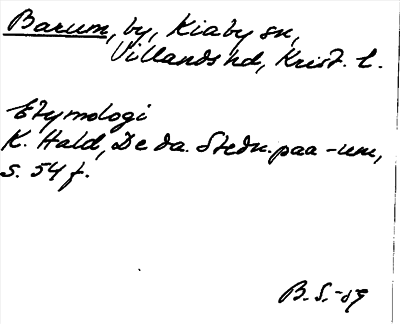 Barum, by, Kiaby sn,
Villands hd, Krist. l.
Etymologi
K. Hald, De da. Stedn. paa -um,
s. 54 f.
B. S. -59